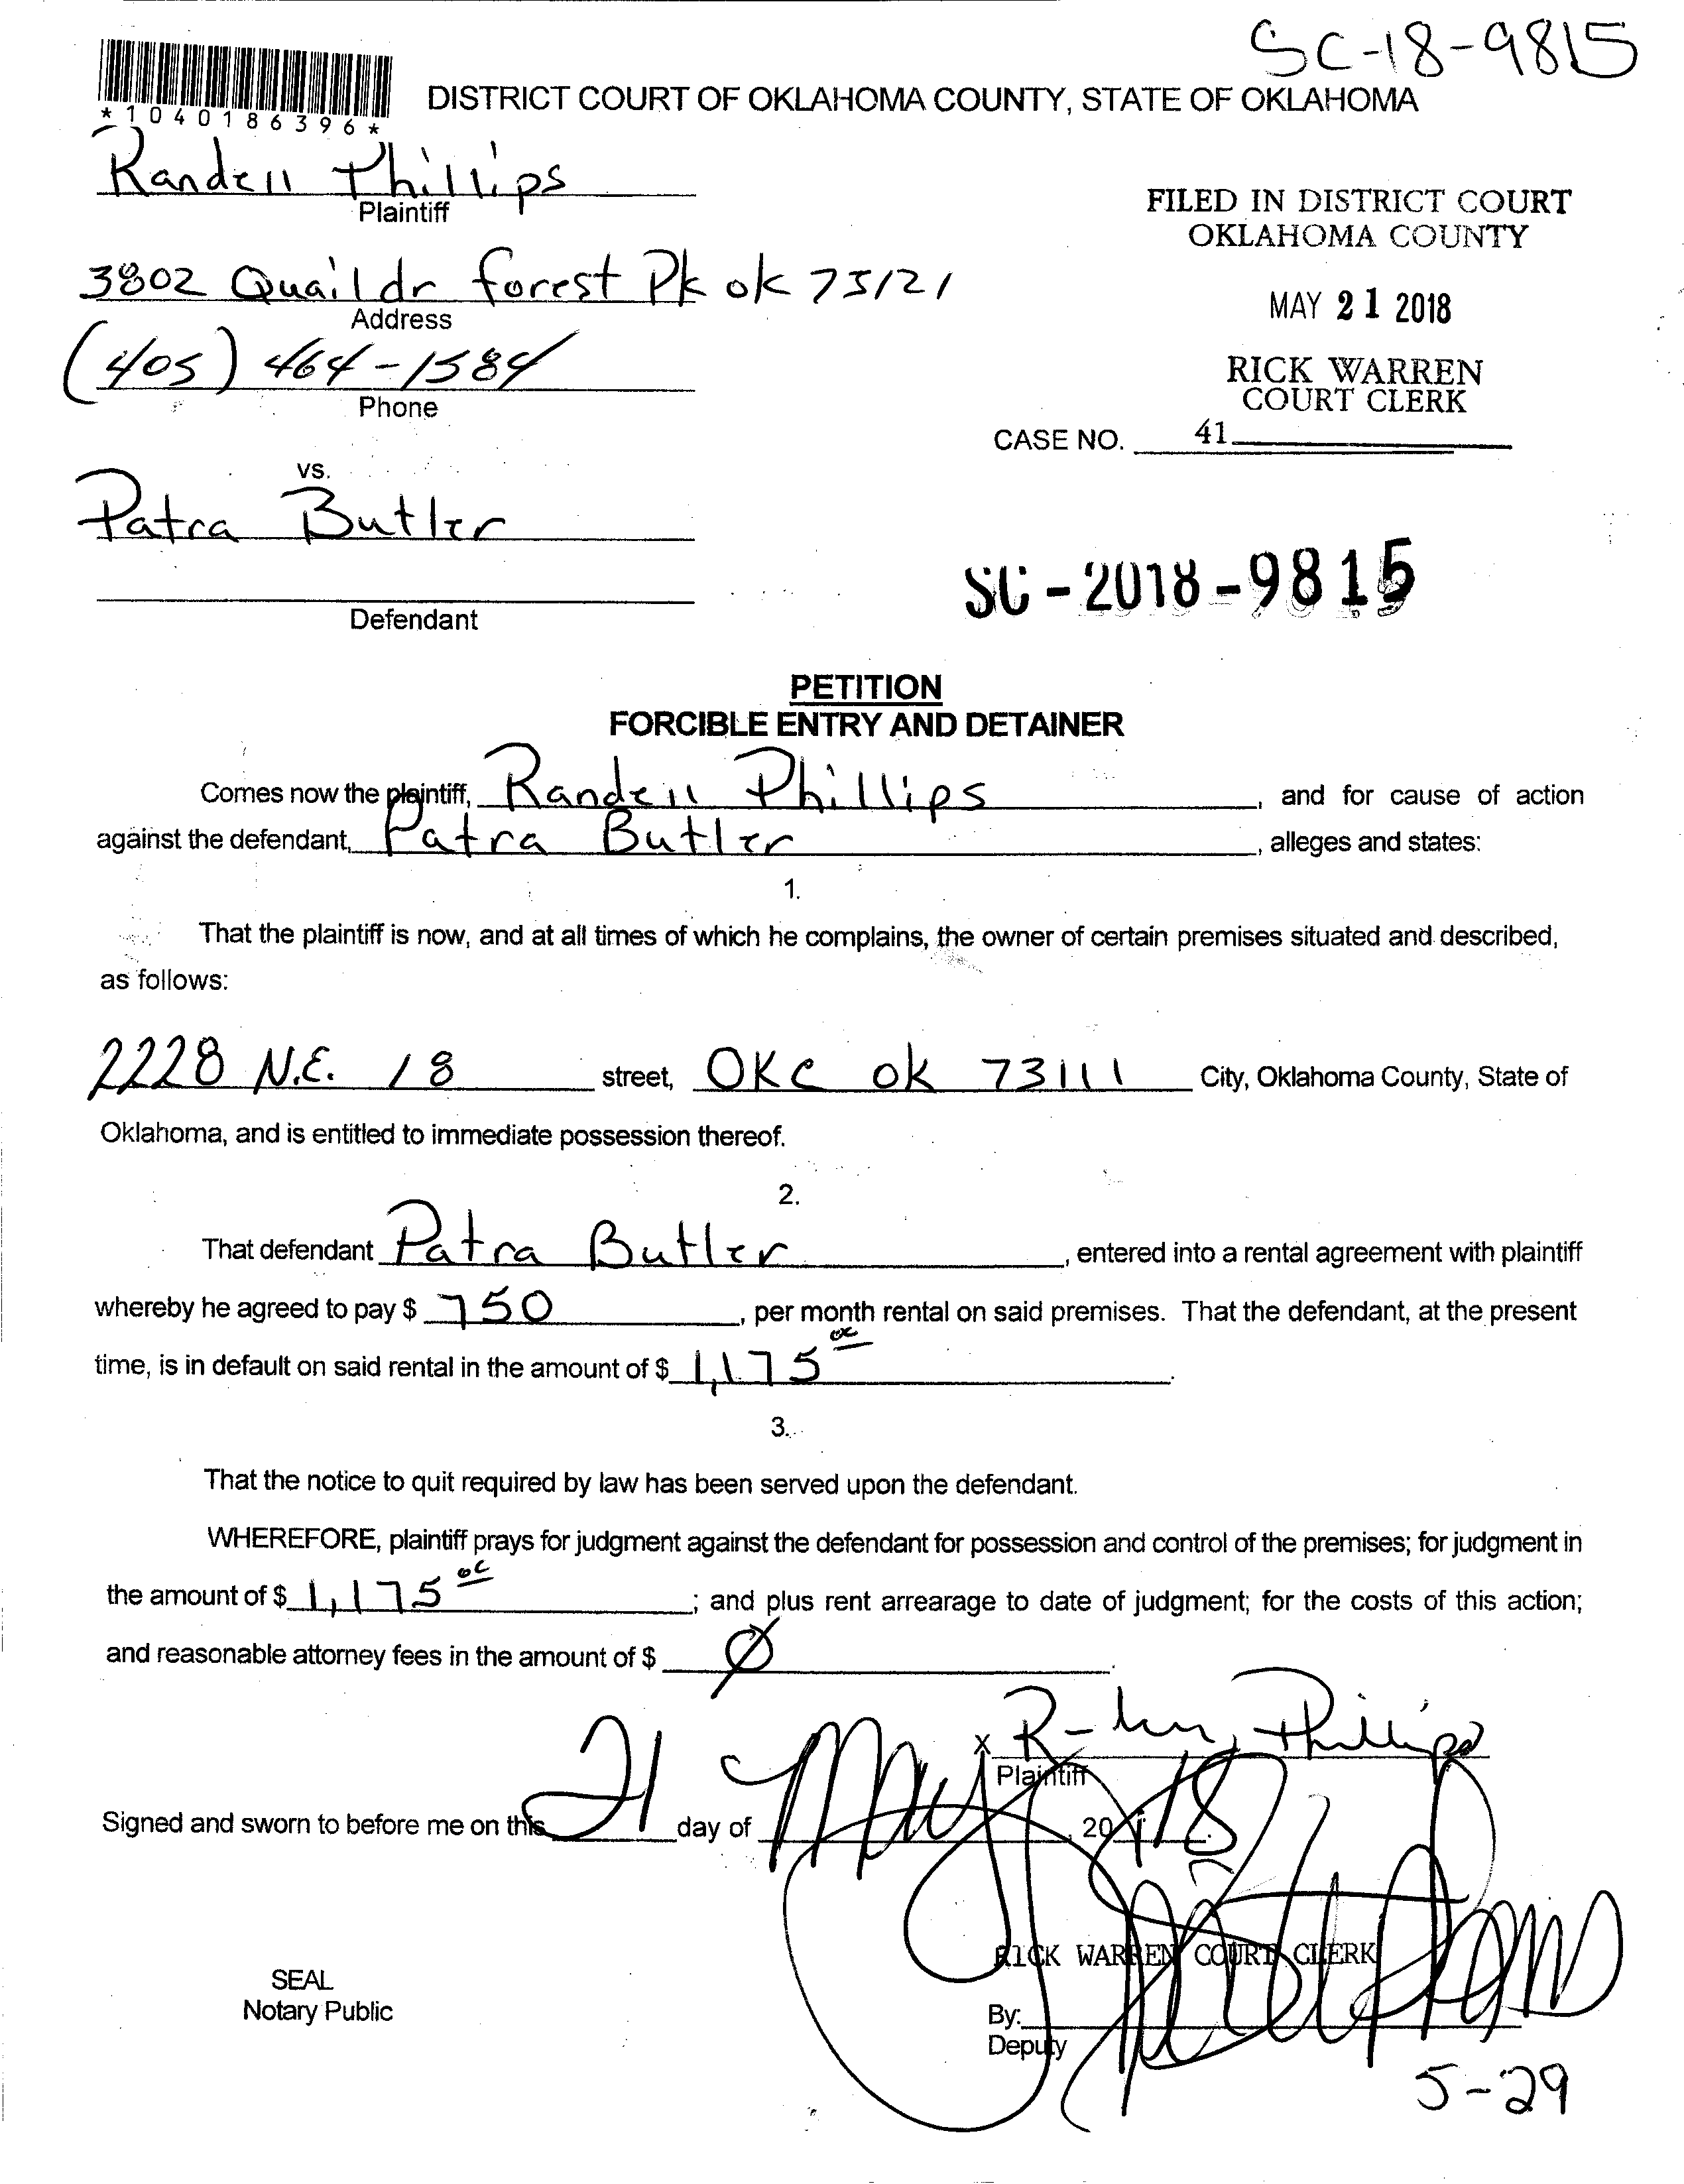 SC-18-9815
*1040186396*
DISTRICT COURT OF OKLAHOMA COUNTY, STATE OF OKLAHOMA
Randell Phillips
Plaintiff
FILED IN DISTRICT COURT
OKLAHOMA COUNTY
3802 Quail dr forest Pk ok 73121
Address
MAY 21 2018
(405) 464-1584
Phone
RICK WARREN
COURT CLERK
CASE NO. 41
vs.
Patra Butler
Defendant
SC-2018-9815
PETITION
FORCIBLE ENTRY AND DETAINER
Comes now the plaintiff, Randell Phillips, and for cause of action
against the defendant, Patra Butler, alleges and states:
1.
That the plaintiff is now, and at all times of which he complains, the owner of certain premises situated and described,
as follows:
2228 N.E. 18 street, OKC ok 73111 City, Oklahoma County, State of
Oklahoma, and is entitled to immediate possession thereof.
2.
That defendant Patra Butler, entered into a rental agreement with plaintiff
whereby he agreed to pay $ 750, per month rental on said premises. That the defendant, at the present
time, is in default on said rental in the amount of $ 1,175 00.
3.
That the notice to quit required by law has been served upon the defendant.
WHEREFORE, plaintiff prays for judgment against the defendant for possession and control of the premises; for judgment in
the amount of $ 1,175 00; and plus rent arrearage to date of judgment; for the costs of this action;
and reasonable attorney fees in the amount of $ Ø.
X Phillips
Plaintiff
Signed and sworn to before me on this 21 day of May, 2018.
RICK WARREN COURT CLERK
SEAL
Notary Public
By:
Deputy
5-29